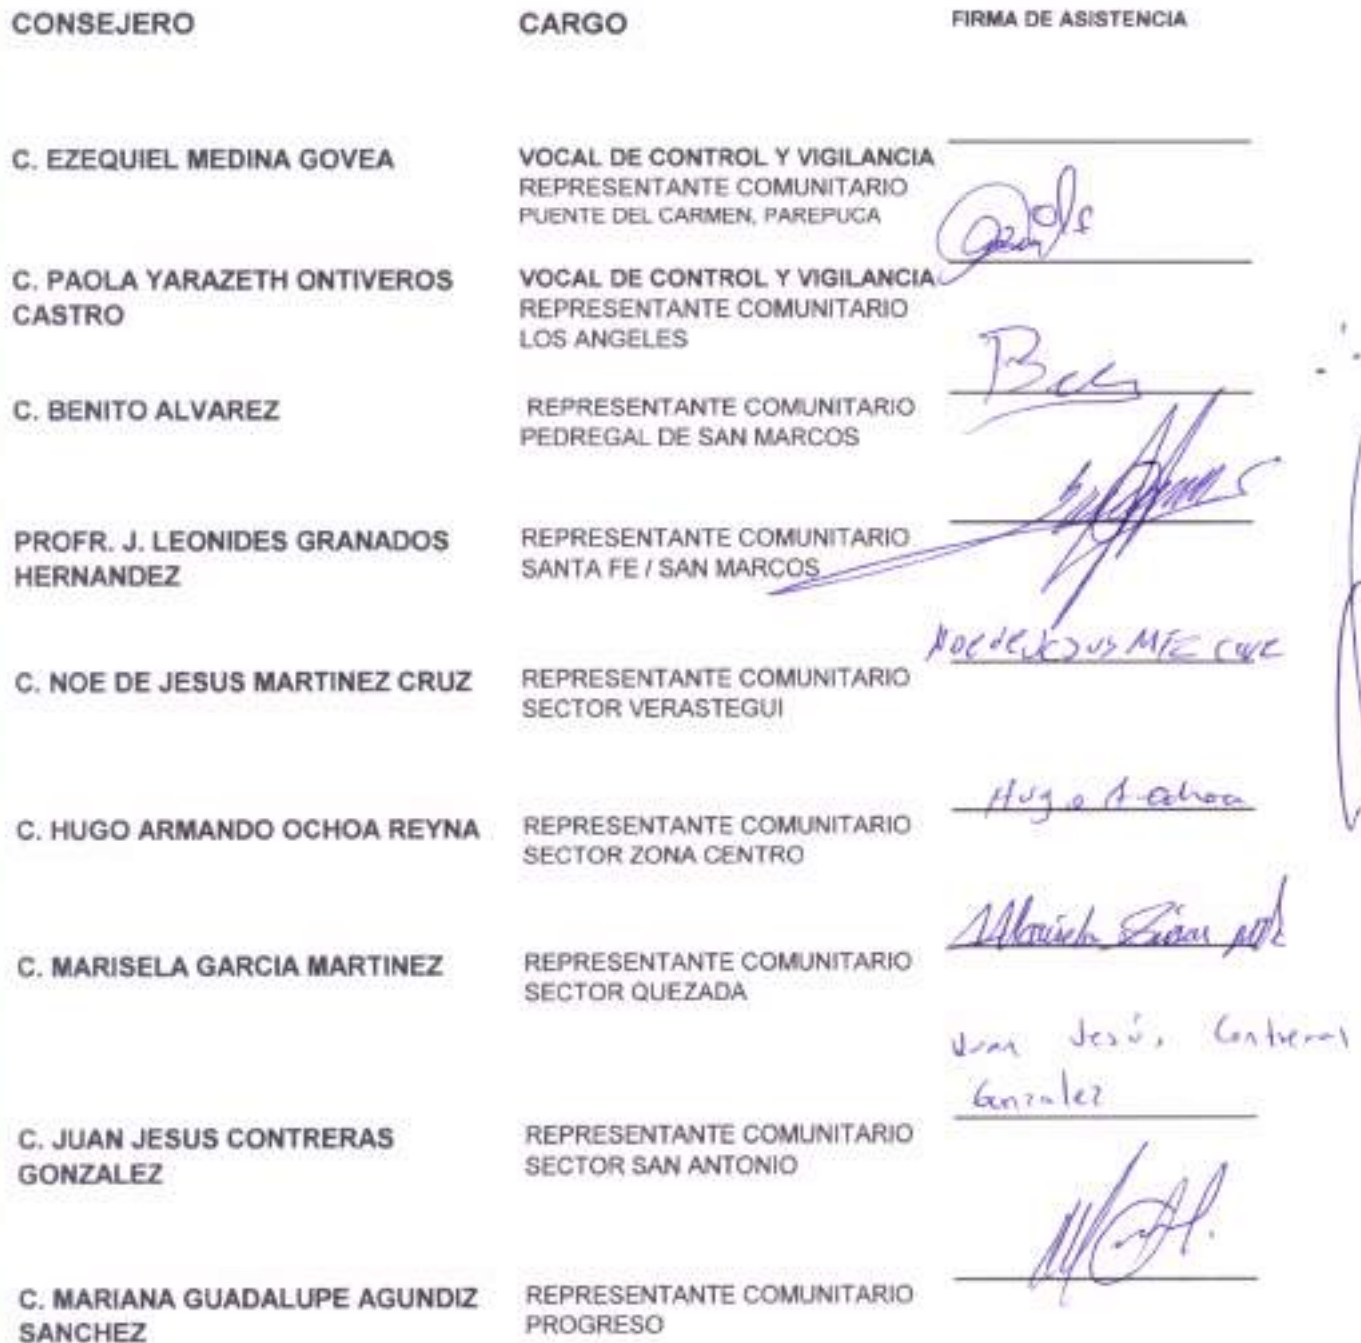 CONSEJERO CARGO FIRMA DE ASISTENCIA
C. EZEQUIEL MEDINA GOVEA VOCAL DE CONTROL Y VIGILANCIA
REPRESENTANTE COMUNITARIO
PUENTE DEL CARMEN, PAREPUCA
C. PAOLA YARAZETH ONTIVEROS VOCAL DE CONTROL Y VIGILANCIA
CASTRO REPRESENTANTE COMUNITARIO
LOS ANGELES
C. BENITO ALVAREZ REPRESENTANTE COMUNITARIO
PEDREGAL DE SAN MARCOS
PROFR. J. LEONIDES GRANADOS REPRESENTANTE COMUNITARIO
HERNANDEZ SANTA FE / SAN MARCOS
Noe de Jesus MTZ
C. NOE DE JESUS MARTINEZ CRUZ REPRESENTANTE COMUNITARIO
SECTOR VERASTEGUI
Hugo A. Ochoa
C. HUGO ARMANDO OCHOA REYNA REPRESENTANTE COMUNITARIO
SECTOR ZONA CENTRO
Marisela
C. MARISELA GARCIA MARTINEZ REPRESENTANTE COMUNITARIO
SECTOR QUEZADA
Juan Jesús Contreras
Gonzalez
C. JUAN JESUS CONTRERAS REPRESENTANTE COMUNITARIO
GONZALEZ SECTOR SAN ANTONIO
C. MARIANA GUADALUPE AGUNDIZ REPRESENTANTE COMUNITARIO
SANCHEZ PROGRESO